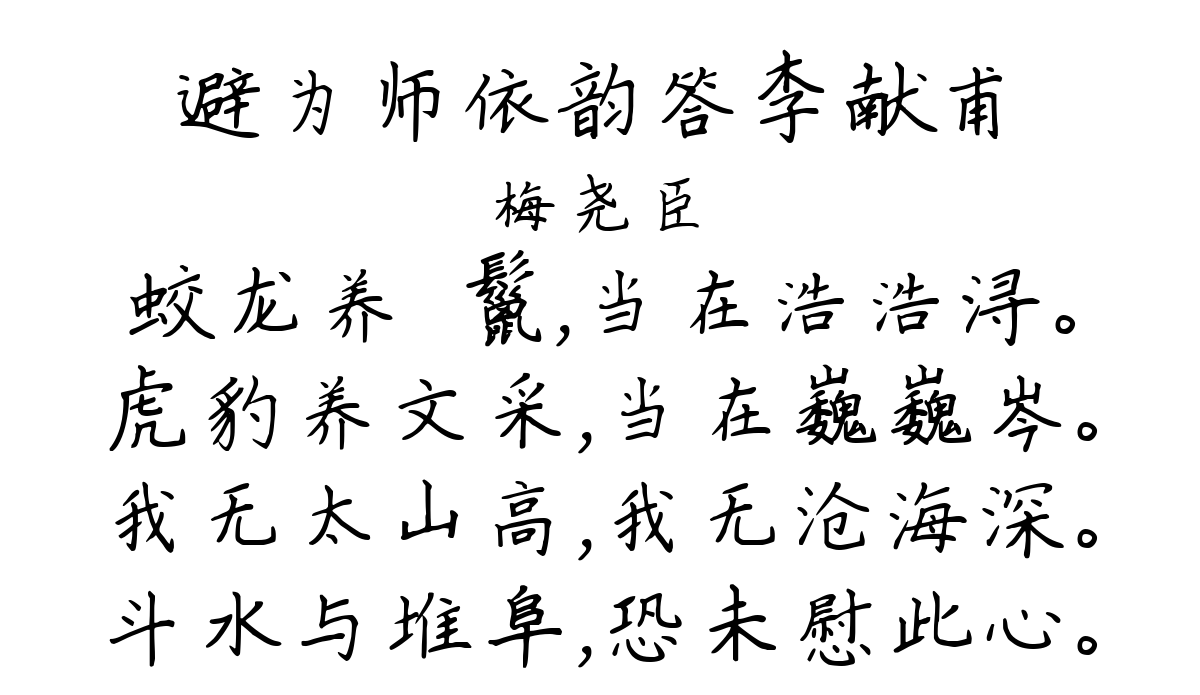 避为师依韵答李献甫
梅尧臣
蛟龙养 鬣,当在浩浩浔。
虎豹养文采,当在巍巍岑。
我无太山高,我无沧海深。
斗水与堆阜,恐未慰此心。